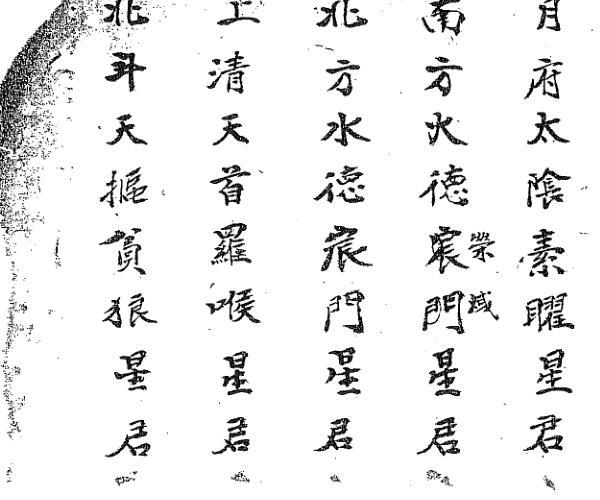 月府太陰素曜星君
南方火德宸門星君
熒惑
北方水德宸門星君
上清天首羅㬋星君
北斗天摳貪狼星君